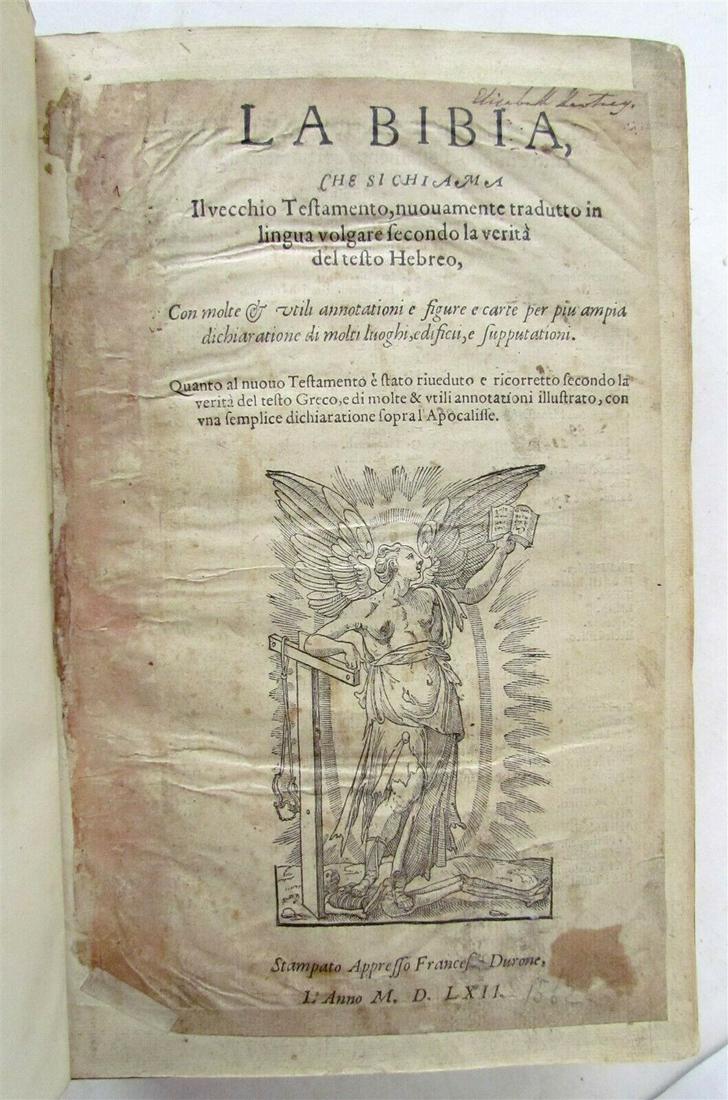 LA BIBIA,
CHE SI CHIAMA
Il vecchio Teſtamento, nuouamente tradutto in
lingua volgare ſecondo la verità
del teſto Hebreo,
Con molte & vtili annotationi e figure e carte per piu ampia
dichiaratione di molti luoghi, edificii, e ſupputationi.
Quanto al nuouo Teſtamento è ſtato riueduto e ricorretto ſecondo la
verità del teſto Greco, e di molte & vtili annotationi illuſtrato, con
vna ſemplice dichiaratione ſopra l'Apocaliſſe.
Stampato Appreſſo Franceſ. Durone,
L'Anno M. D. LXII. 1562